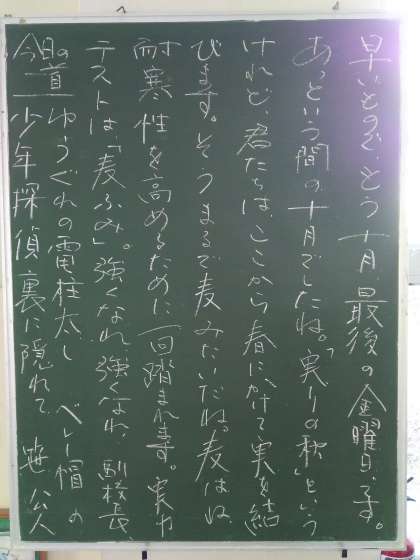 早いもので、もう十月最後の金曜日です。
あっという間の十月でしたね。「実りの秋」という
けれど、君たちは、ここから春にかけて、実を結
びます。そうまるで麦みたいだね。麦はね、
耐寒性を高めるために一回踏まれます。実力
テストは、「麦ふみ」。強くなれ、強くなれ、副校長
今日の道 ゆうぐれの電柱太し ベレー帽の
少年探偵裏に隠れて 笹公人